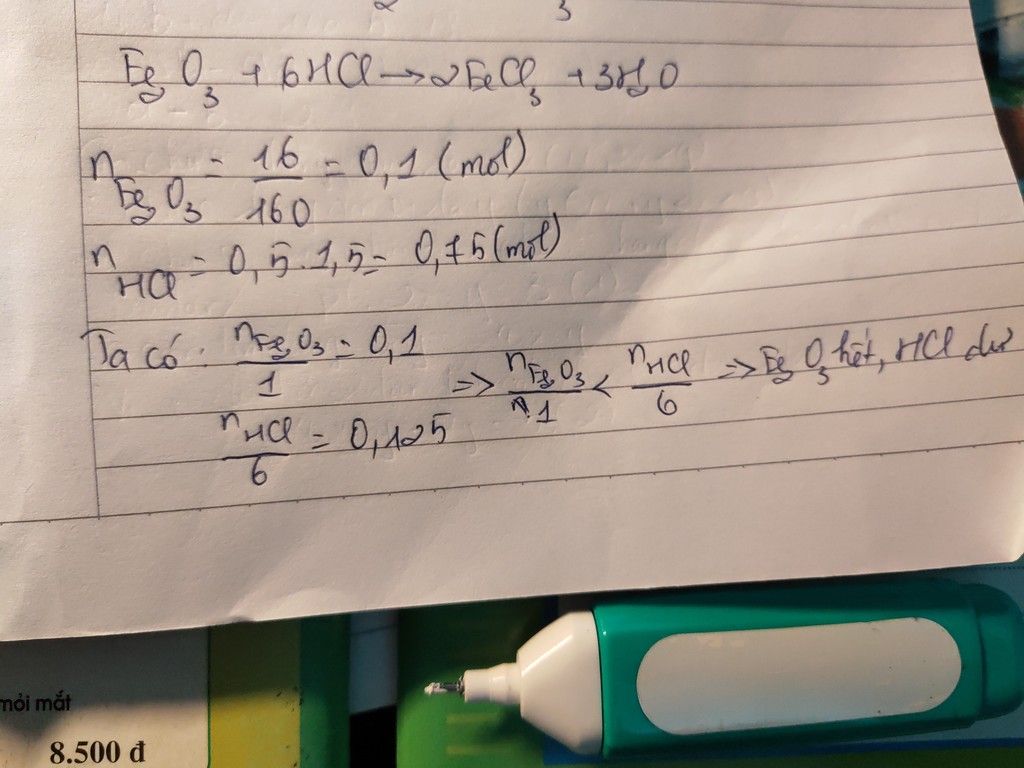 2 3
Fe2O3 + 6HCl → 2FeCl3 + 3H2O
nFe2O3 = 16/160 = 0,1 (mol)
nHCl = 0,5 . 1,5 = 0,75 (mol)
Ta có : nFe2O3/1 = 0,1
=> nFe2O3/1 < nHCl/6 => Fe2O3 hết, HCl dư
nHCl/6 = 0,125
mỏi mắt
8.500 đ